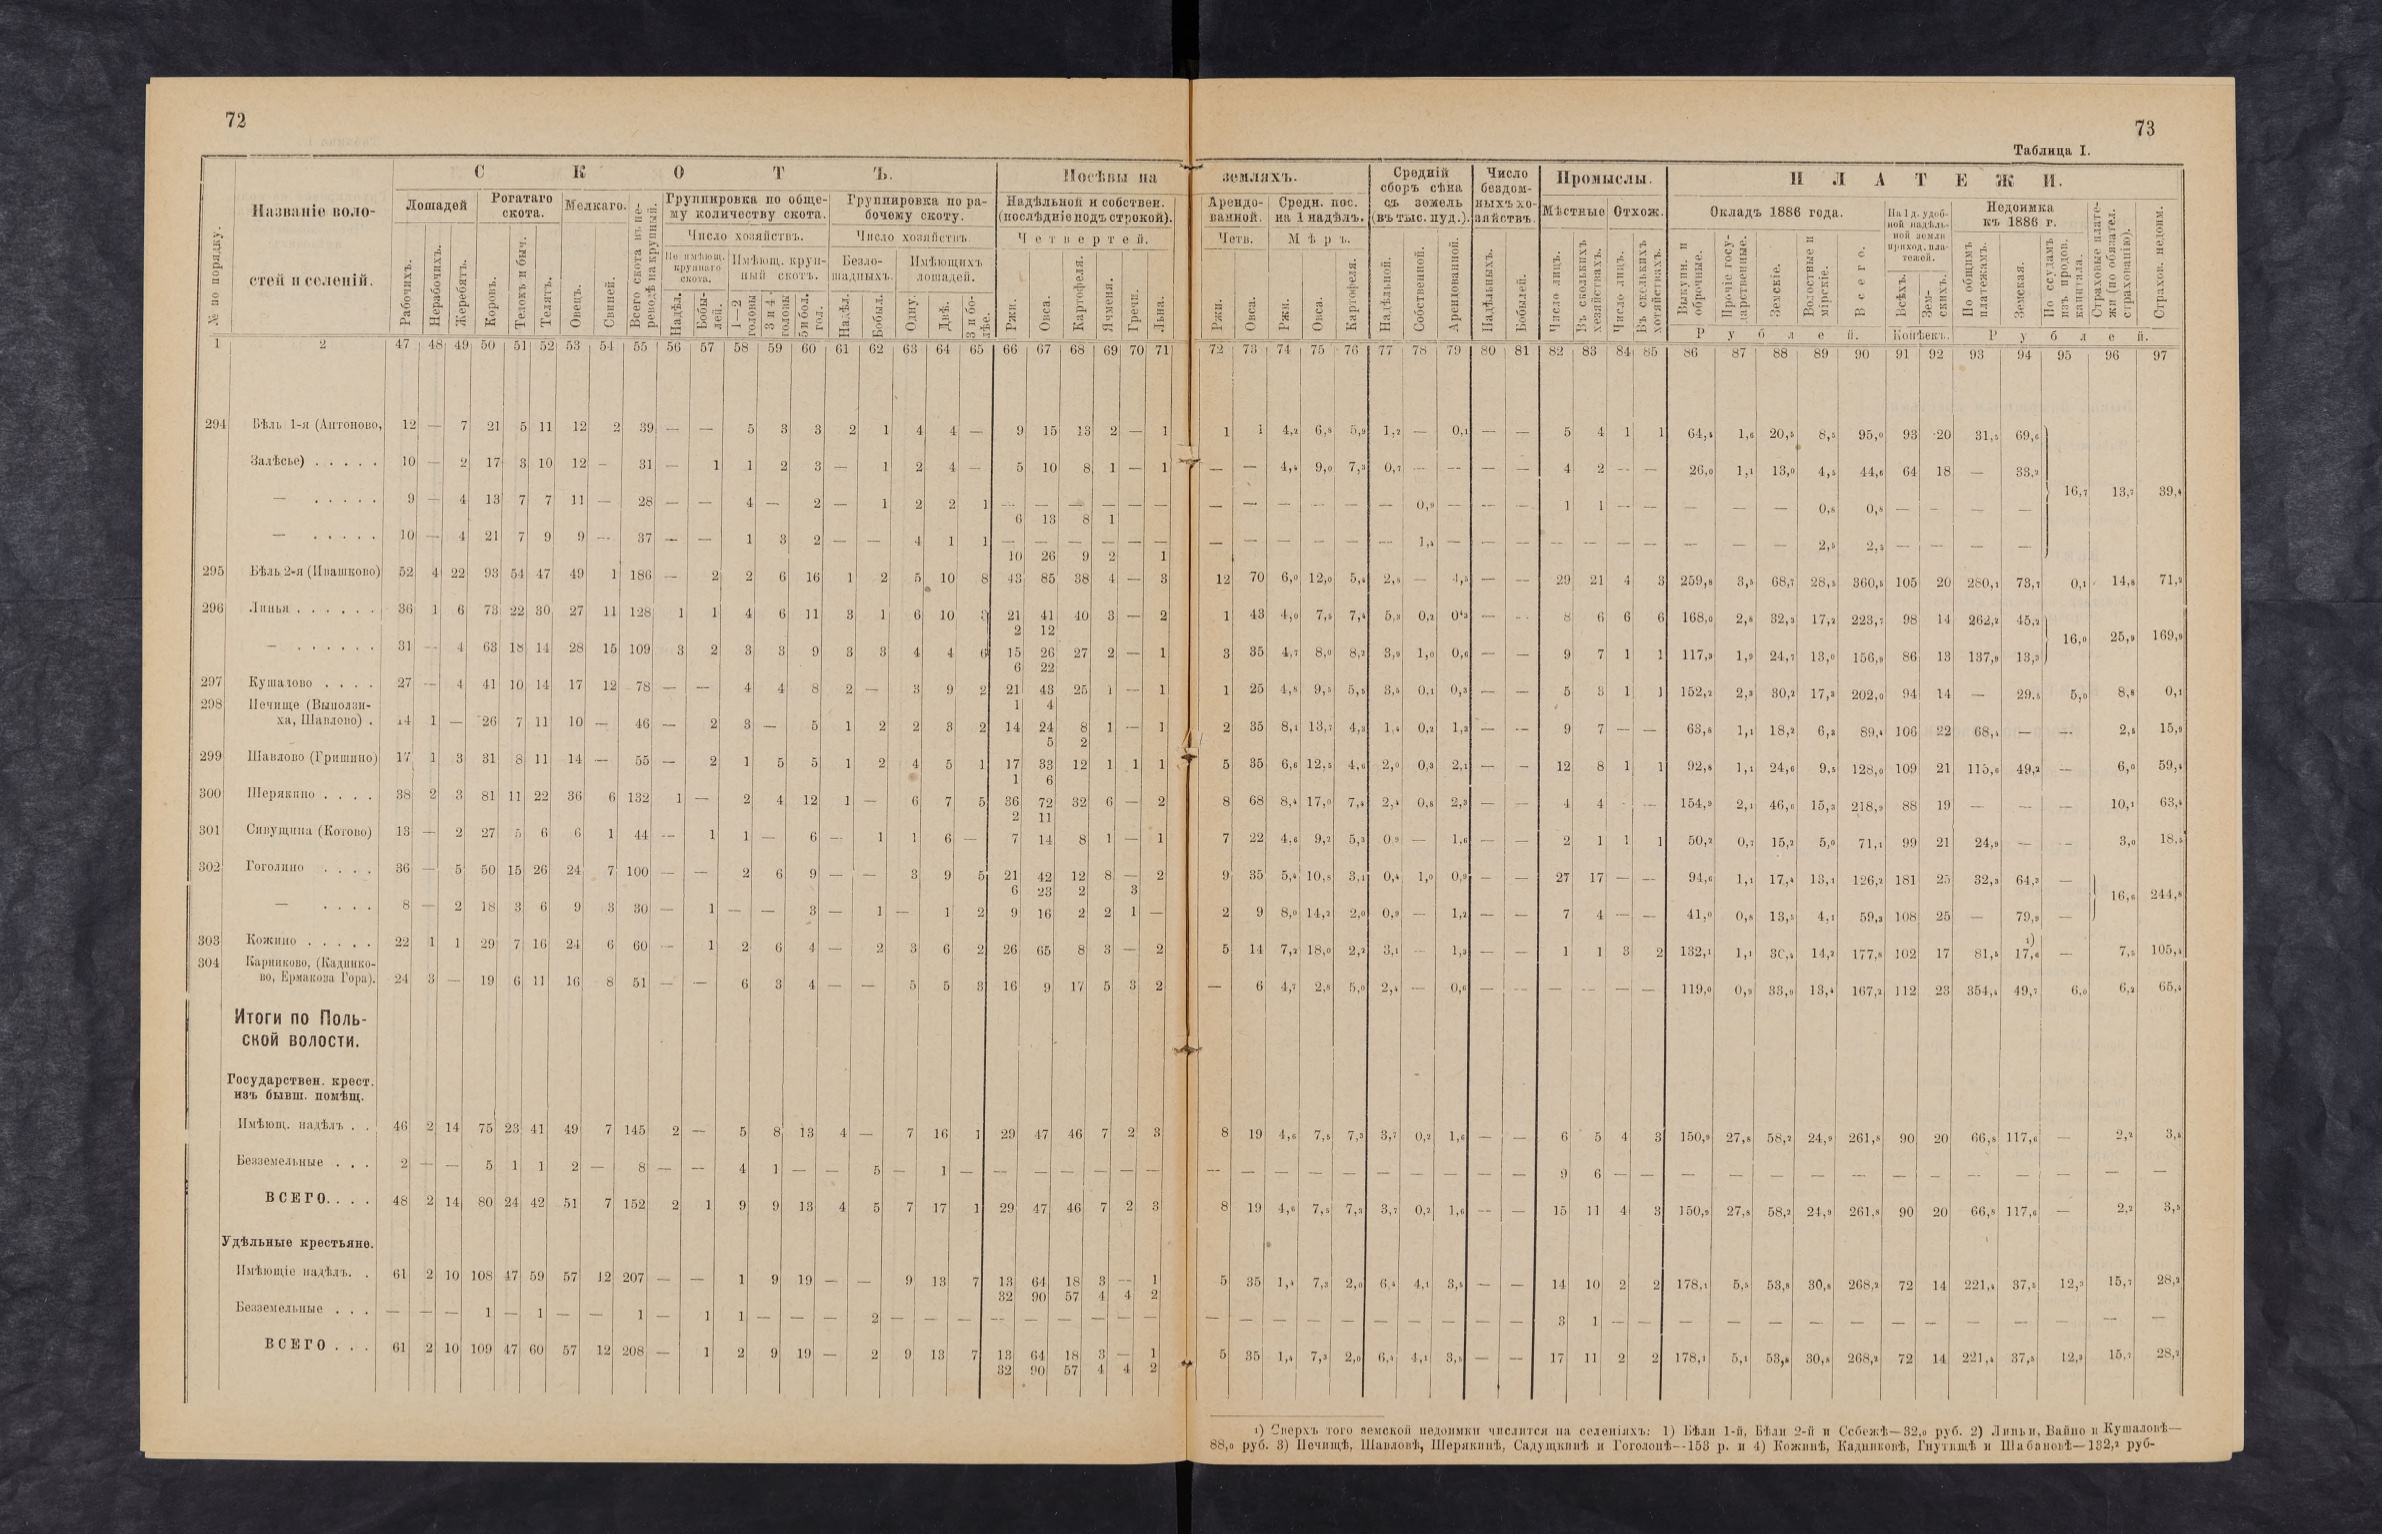 72
73
Таблица I.
№ по порядку.
Названіе воло-
стей и селеній.
СКОТЪ.
Лошадей
Рогатаго
скота.
Мелкаго.
Всего скота въ пе-
реводѣ на крупный.
Группировка по обще-
му количеству скота.
Группировка по ра-
бочему скоту.
Число хозяйствъ.
Число хозяйствъ
Не имѣющ.
крупнаго
скота.
Имѣющ. круп-
ный скотъ.
Безло-
шадныхъ.
Имѣющихъ
лошадей.
Рабочихъ.
Нерабочихъ.
Жеребятъ.
Коровъ.
Телокъ и быч.
Телятъ.
Овецъ.
Свиней.
Надѣл.
Бобы-
лей.
1—2
головы
3 и 4
головы
5 и бол.
гол.
Надѣл.
Бобыл.
Одну.
Двѣ.
3 и бо-
лѣе.
Посѣвы на земляхъ.
Надѣльной и собствен.
(послѣдніе подъ строкой).
Четвертей.
Ржи.
Овса.
Картофеля.
Ячменя.
Гречи.
Льна.
Арендо-
ванной.
Четв.
Ржи.
Овса.
Средн. пос.
на 1 надѣлъ.
Мѣръ.
Ржи.
Овса.
Картофеля.
Средній
сборъ сѣна
съ земель
(въ тыс. пуд.).
Надѣльной.
Собственной.
Арендованной.
Число
бездом-
ныхъ хо-
зяйствъ.
Надѣльныхъ.
Бобылей.
Промыслы.
Мѣстные
Отхож.
Число лицъ.
Въ сколькихъ
хозяйствахъ.
Число лицъ.
Въ сколькихъ
хозяйствахъ.
ПЛАТЕЖИ.
Окладъ 1886 года.
Выкупн. и
оброчные.
Прочіе госу-
дарственные.
Земскіе.
Волостные и
мірскіе.
Всего.
Рублей.
На 1 д. удоб-
ной надѣль-
ной земли
приход. пла-
тежей.
Всѣхъ.
Зем-
скихъ.
Копѣекъ.
Недоимка
къ 1886 г.
По общимъ
платежамъ.
Земская.
По ссудамъ
изъ продов.
капитала.
Страховые плате-
жи (по обязател.
страхованію).
Страхов. недоим.
Рублей.
1 2 47 48 49 50 51 52 53 54 55 56 57 58 59 60 61 62 63 64 65 66 67 68 69 70 71 72 73 74 75 76 77 78 79 80 81 82 83 84 85 86 87 88 89 90 91 92 93 94 95 96 97
294 Бѣль 1-я (Антоново, 12 — 7 21 5 11 12 2 39 — — 5 3 3 2 1 4 4 — 9 15 13 2 — 1 1 1 4,2 6,8 5,9 1,2 — 0,1 — — 5 4 1 1 64,5 1,6 20,5 8,5 95,0 93 20 31,5 69,6
Залѣсье) . . . . . 10 — 2 17 3 10 12 — 31 — 1 1 2 3 — 1 2 4 — 5 10 8 1 — 1 — — 4,4 9,0 7,3 0,7 — — — — 4 2 — — 26,0 1,1 13,0 4,5 44,6 64 18 — 33,2
— . . . . . 9 — 4 13 7 7 11 — 28 — — 4 — 2 — 1 2 2 1 — — — — — — — — — — — — 0,9 — — — 1 1 — — — — — 0,8 0,8 — — — — 16,7 13,7 39,4
6 13 8 1
— . . . . . 10 — 4 21 7 9 9 — 37 — — 1 3 2 — — 4 1 1 — — — — — — — — — — — — 1,4 — — — — — — — — — — 2,5 2,5 — — — —
10 26 9 2 1
295 Бѣль 2-я (Ивашково) 52 4 22 93 54 47 49 1 186 — 2 2 6 16 1 2 5 10 8 43 85 38 4 — 3 12 70 6,0 12,0 5,4 2,8 — 4,5 — — 29 21 4 3 259,8 3,5 68,7 28,5 360,5 105 20 280,1 73,7 0,1 14,8 71,2
296 Линья . . . . . . 36 1 6 73 22 30 27 11 128 1 1 4 6 11 3 1 6 10 3 21 41 40 3 — 2 1 43 4,0 7,5 7,4 5,3 0,2 — — 8 6 6 6 168,0 2,8 32,3 17,2 223,7 98 14 262,2 45,2
2 12
— . . . . . . 31 — 4 63 18 14 28 15 109 3 2 3 3 9 3 3 4 4 6 15 26 27 2 — 1 3 35 4,7 8,0 8,2 3,9 1,0 0,6 — — 9 7 1 1 117,3 1,9 24,7 13,0 156,9 86 13 137,9 13,3 16,0 25,9 169,9
6 22
297 Кушалово . . . . 27 — 4 41 10 14 17 12 78 — — 4 4 8 2 — 3 9 2 21 43 25 1 — 1 1 25 4,8 9,5 5,5 3,5 0,1 0,3 — — 5 3 1 1 152,2 2,3 30,2 17,3 202,0 94 14 — 29,5 5,0 8,8 0,1
1 4
298 Печище (Выползи-
ха, Шавлово) . 14 1 — 26 7 11 10 — 46 — 2 3 — 5 1 2 2 3 2 14 24 8 1 — 1 2 35 8,1 13,7 4,3 1,4 0,2 1,3 — — 9 7 — — 63,8 1,1 18,2 6,3 89,4 106 22 68,4 — — 2,5 15,9
5 2
299 Шавлово (Гришино) 17 1 3 31 8 11 14 — 55 — 2 1 5 5 1 2 4 5 1 17 33 12 1 1 1 5 35 6,6 12,5 4,6 2,0 0,3 2,1 — — 12 8 1 1 92,8 1,1 24,6 9,5 128,0 109 21 115,6 49,2 — 6,0 59,4
1 6
300 Шерякино . . . . 38 2 3 81 11 22 36 6 132 1 — 2 4 12 1 — 6 7 5 36 72 32 6 — 2 8 68 8,4 17,0 7,5 2,4 0,8 2,3 — — 4 4 — — 154,9 2,1 46,6 15,3 218,9 88 19 — — — 10,1 63,4
2 11
301 Сивущина (Котово) 13 — 2 27 5 6 6 1 44 — 1 1 — 6 — 1 1 6 — 7 14 8 1 — 1 7 22 4,6 9,2 5,3 0,9 — 1,6 — — 2 1 1 1 50,2 0,7 15,2 5,0 71,1 99 21 24,9 — — 3,0 18,5
302 Гоголино . . . . 36 — 5 50 15 26 24 7 100 — — 2 6 9 — — 3 9 5 21 42 12 8 — 2 9 35 5,4 10,8 3,1 0,4 1,0 0,9 — — 27 17 — — 94,6 1,1 17,4 13,1 126,2 181 25 32,3 64,3 —
6 23 2 3
— . . . . 8 — 2 18 3 6 9 3 30 — 1 — — 3 — 1 — 1 2 9 16 2 2 1 — 2 9 8,0 14,2 2,0 0,9 — 1,2 — — 7 4 — — 41,0 0,8 13,5 4,1 59,3 108 25 — 79,9 — 16,6 244,8
303 Кожино . . . . . 22 1 1 29 7 16 24 6 60 — 1 2 6 4 — 2 3 6 2 26 65 8 3 — 2 5 14 7,2 18,0 2,2 3,1 — 1,3 — — 1 1 3 2 132,1 1,1 30,4 14,2 177,8 102 17 81,5 17,6 1) — 7,5 105,4
304 Карниково, (Кадпико-
во, Ермакова Гора). 24 3 — 19 6 11 16 8 51 — — 6 3 4 — — 5 5 3 16 9 17 5 3 2 — 6 4,7 2,8 5,0 2,4 — 0,6 — — — — — — 119,0 0,9 33,0 13,4 167,2 112 23 354,4 49,7 6,0 6,2 65,4
Итоги по Поль-
ской волости.
Государствен. крест.
изъ бывш. помѣщ.
Имѣющ. надѣлъ . . 46 2 14 75 23 41 49 7 145 2 — 5 8 13 4 — 7 16 1 29 47 46 7 2 3 8 19 4,6 7,5 7,3 3,7 0,2 1,6 — — 6 5 4 3 150,9 27,8 58,2 24,9 261,8 90 20 66,8 117,6 — 2,2 3,5
Безземельные . . . 2 — — 5 1 1 2 — 8 — — 4 1 — — 5 — 1 — — — — — — — — — — — — — — — — — 9 6 — — — — — — — — — — — — — —
ВСЕГО. . . . 48 2 14 80 24 42 51 7 152 2 1 9 9 13 4 5 7 17 1 29 47 46 7 2 3 8 19 4,6 7,5 7,3 3,7 0,2 1,6 — — 15 11 4 3 150,9 27,8 58,2 24,9 261,8 90 20 66,8 117,6 — 2,2 3,5
Удѣльные крестьяне.
Имѣющіе надѣлъ. . 61 2 10 108 47 59 57 12 207 — — 1 9 19 — — 9 13 7 13 64 18 3 — 1 5 35 1,4 7,3 2,0 6,4 4,1 3,5 — — 14 10 2 2 178,1 5,5 53,8 30,8 268,2 72 14 221,4 37,5 12,3 15,7 28,2
32 90 57 4 4 2
Безземельные . . . — — — 1 — 1 — — 1 — 1 1 — — — 2 — — — — — — — — — — — — — — — — — — — 3 1 — — — — — — — — — — — — — —
ВСЕГО . . . 61 2 10 109 47 60 57 12 208 — 1 2 9 19 — 2 9 13 7 13 64 18 3 — 1 5 35 1,4 7,3 2,0 6,4 4,1 3,5 — — 17 11 2 2 178,1 5,1 53,8 30,8 268,2 72 14 221,4 37,5 12,3 15,7 28,2
32 90 57 4 4 2
1) Сверхъ того земской недоимки числится на селеніяхъ: 1) Бѣли 1-й, Бѣли 2-й и Ссбежѣ—32,0 руб. 2) Линьи, Вайно и Кушаловѣ—
88,0 руб. 3) Печищѣ, Шавловѣ, Шерякинѣ, Садущкинѣ и Гоголонѣ—153 р. и 4) Кожинѣ, Кадниковѣ, Гнутищѣ и Шабановѣ—132,2 руб-